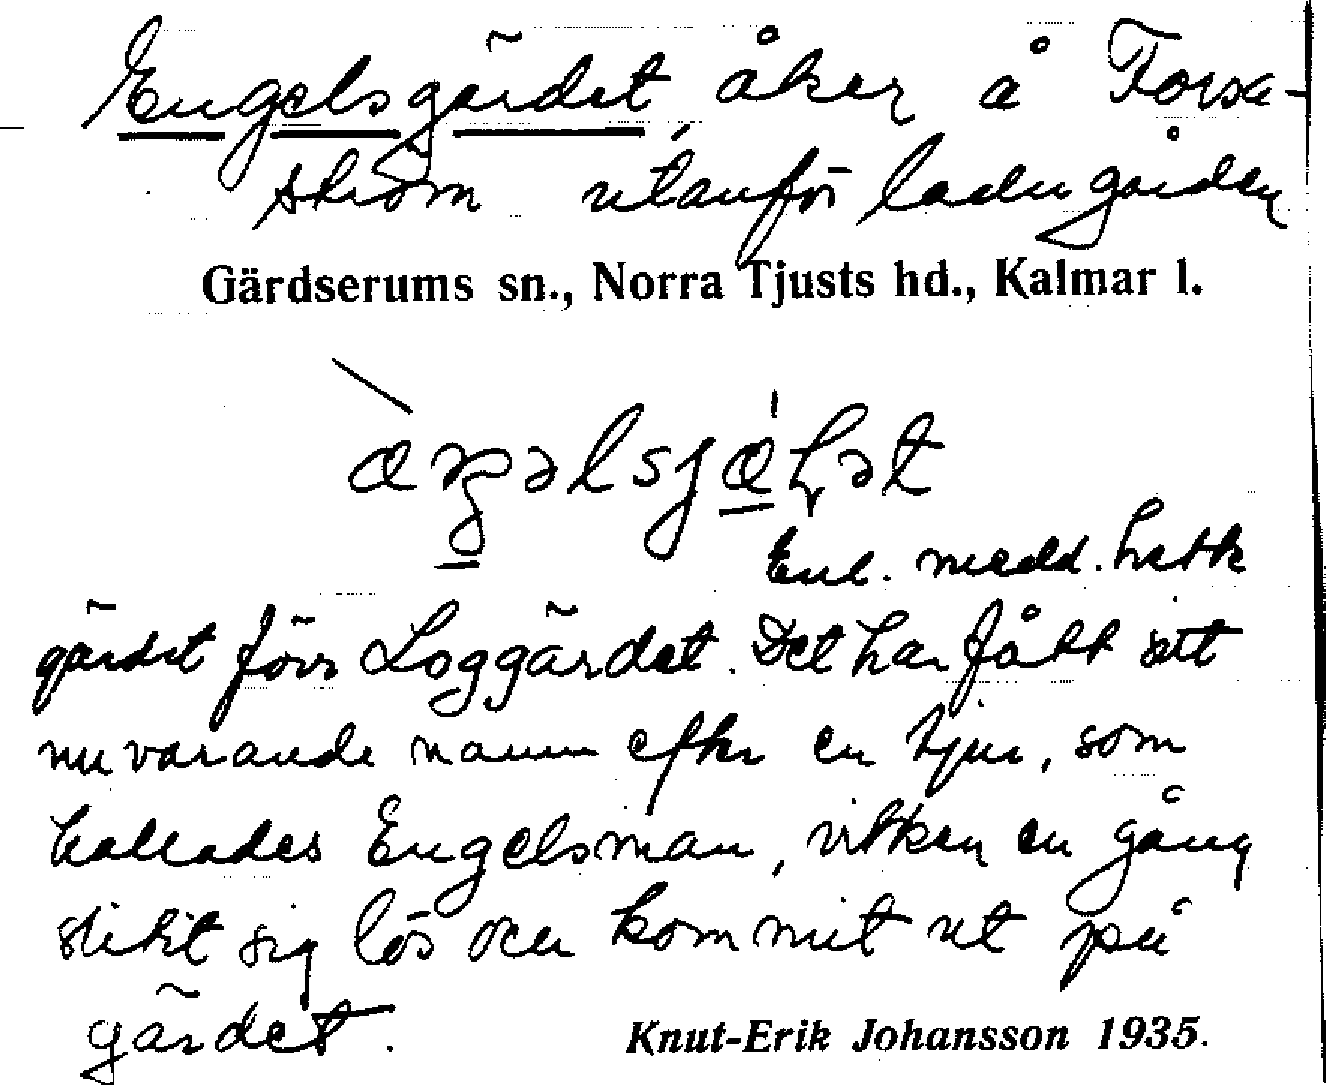 Engelsgärdet, åker å Forsa-
ström utanför ladugården
Gärdserums sn., Norra Tjusts hd., Kalmar l.
Enl. medd. hette
gärdet förr Loggärdet. Det har fått sitt
nuvarande namn efter en tjur, som
kallades Engelsman, vilken en gång
slitit sig lös och kommit ut på
gärdet.
Knut-Erik Johansson 1935.